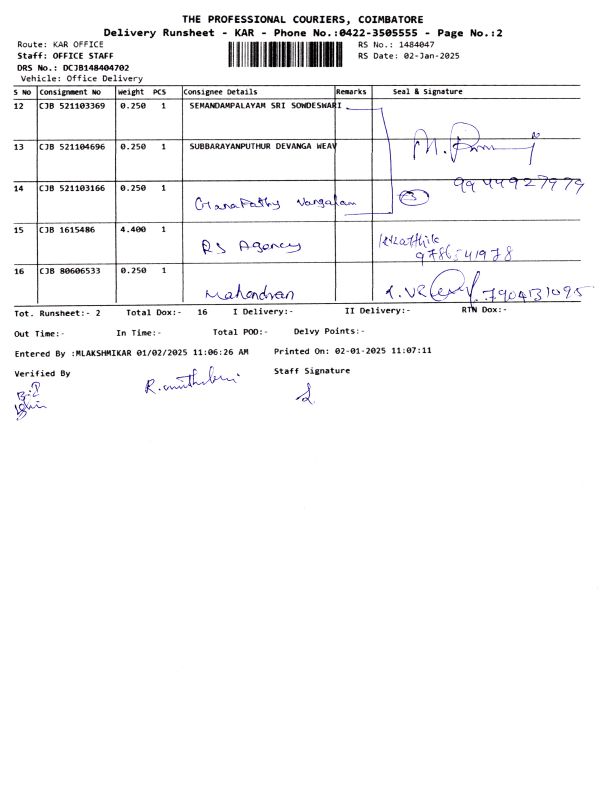 THE PROFESSIONAL COURIERS, COIMBATORE
Delivery Runsheet - KAR - Phone No.:0422-3505555 - Page No.:2
Route: KAR OFFICE RS No.: 1484047
Staff: OFFICE STAFF RS Date: 02-Jan-2025
DRS No.: DCJB148404702
Vehicle: Office Delivery
S NO Consignment No Weight PCS Consignee Details Remarks Seal & Signature
12 CJB 521103369 0.250 1 SEMANDAMPALAYAM SRI SONDESWARI
13 CJB 521104696 0.250 1 SUBBARAYANPUTHUR DEVANGA WEAV
9944927979
14 CJB 521103166 0.250 1 GanaPathy Nangalam
3
15 CJB 1615486 4.400 1 RS Agency
9786541978
16 CJB 80606533 0.250 1 Mahendran
7904131095
Tot. Runsheet:- 2 Total Dox:- 16 I Delivery:- II Delivery:- RTN Dox:-
Out Time:- In Time:- Total POD:- Delvy Points:-
Entered By :MLAKSHMIKAR 01/02/2025 11:06:26 AM Printed On: 02-01-2025 11:07:11
Verified By Staff Signature